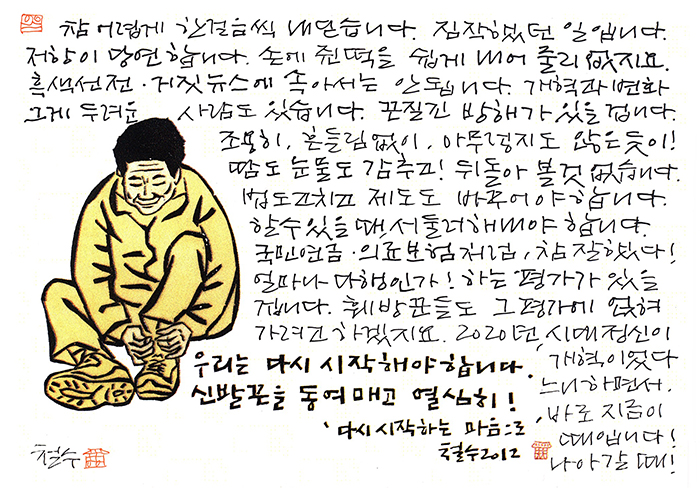 참 어렵게 한걸음씩 내딛습니다. 짐작했던 일입니다.
저항이 당연합니다. 손에 쥔 떡을 쉽게 내어 줄리 없지요.
흑색선전·거짓뉴스에 속아서는 안됩니다. 개혁과 변화
그게 두려운 사람도 있습니다. 끈질긴 방해가 있을겁니다.
조용히, 흔들림없이, 아무렇지도 않은듯이!
땀도 눈물도 감추고! 뒤돌아 볼것 없습니다.
법도 고치고 제도도 바꾸어야 합니다.
할수있을 때, 서둘러 해내야 합니다.
국민연금·의료보험처럼, 참 잘했다!
얼마나 다행인가! 하는 평가가 있을
겁니다. 훼방꾼들도 그 평가에 얹혀
가려고 하겠지요. 2020년, 시대정신이
개혁이었다
느니 하면서.
바로 지금이
때입니다!
나아갈 때!
우리는 다시 시작해야 합니다.
신발끈을 동여매고 열심히!
'다시 시작하는 마음'으로
철수2012
철수